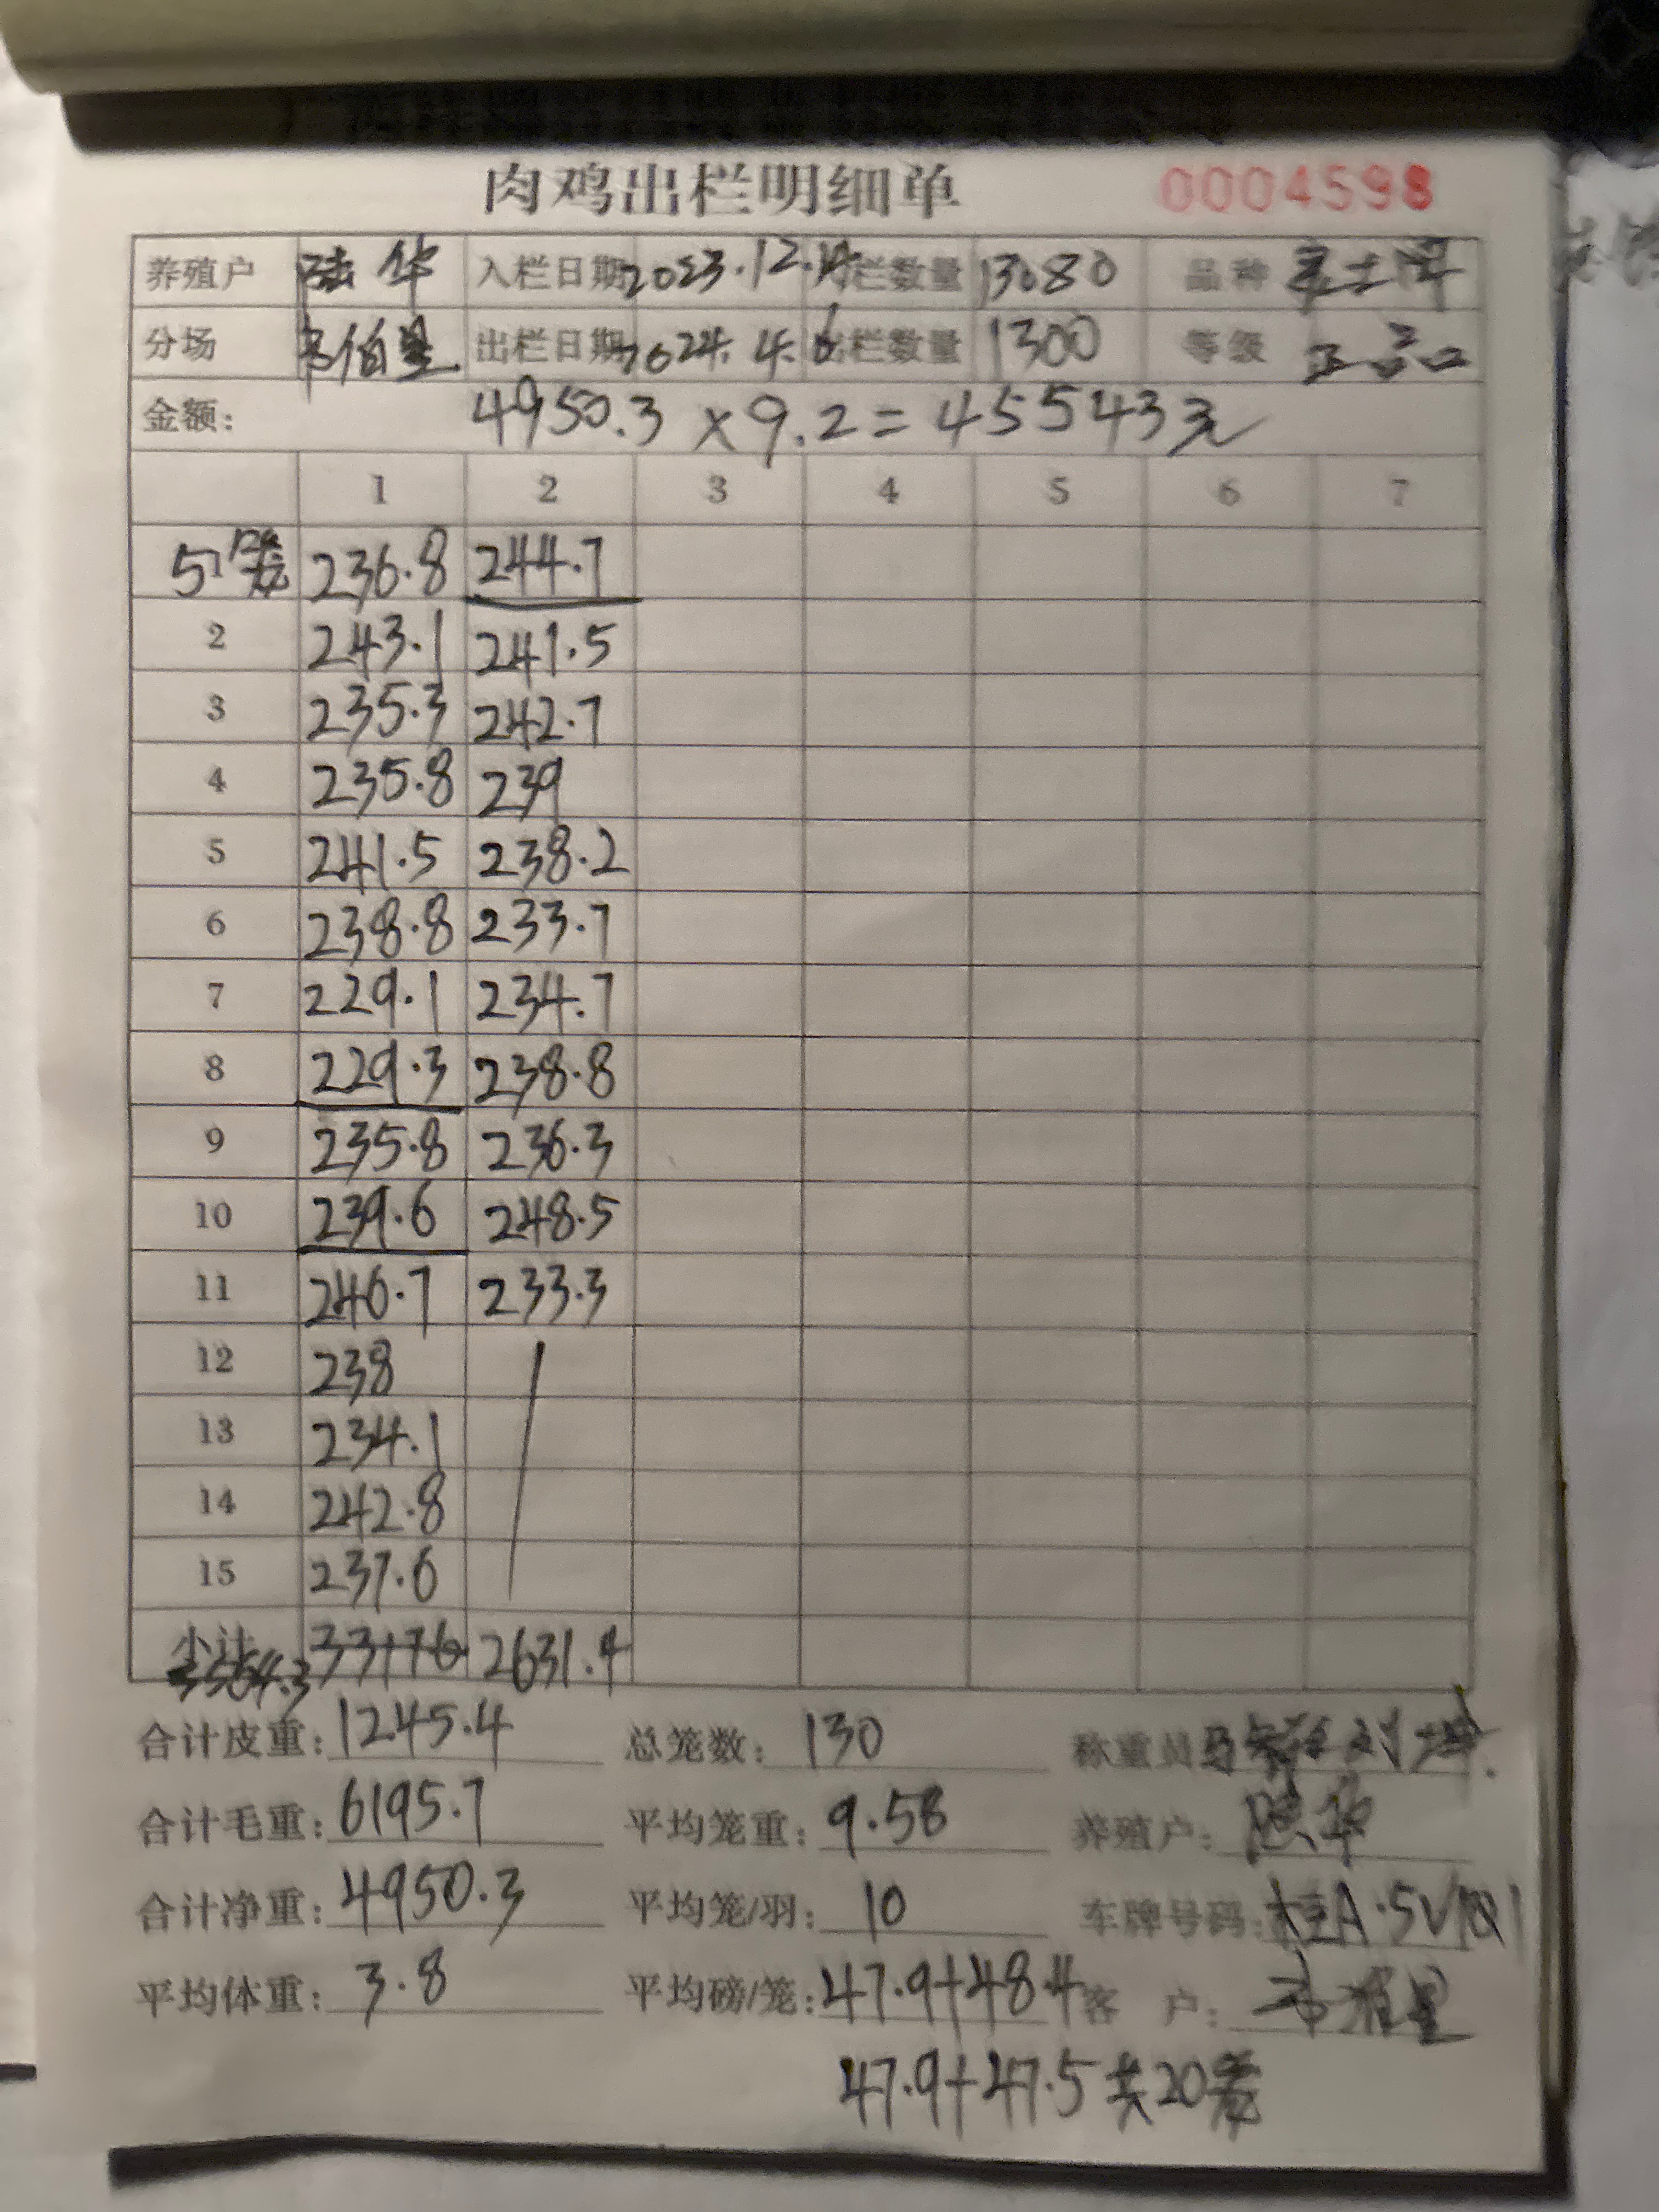 肉鸡出栏明细单 0004598
养殖户 陆华 入栏日期 2023.12.14 入栏数量 13080 品种
分场 韦伯星 出栏日期 2024.4.6 出栏数量 1300 等级 正品
金额: 4950.3 × 9.2 = 45543元
1 2 3 4 5 6 7
5笼 236.8 244.7
2 243.1 241.5
3 235.3 242.7
4 235.8 239
5 241.5 238.2
6 238.8 233.7
7 229.1 234.7
8 229.3 238.8
9 235.8 236.3
10 239.6 248.5
11 246.7 233.3
12 238
13 234.1
14 242.8
15 237.6
小计 33176 2631.4
3564.3
合计皮重: 1245.4 总笼数: 130 称重员
合计毛重: 6195.7 平均笼重: 9.58 养殖户: 陆华
合计净重: 4950.3 平均笼/羽: 10 车牌号码: 桂A·5V
平均体重: 3.8 平均磅/笼: 47.9+48.4 客 户:
47.9+47.5 共20笼